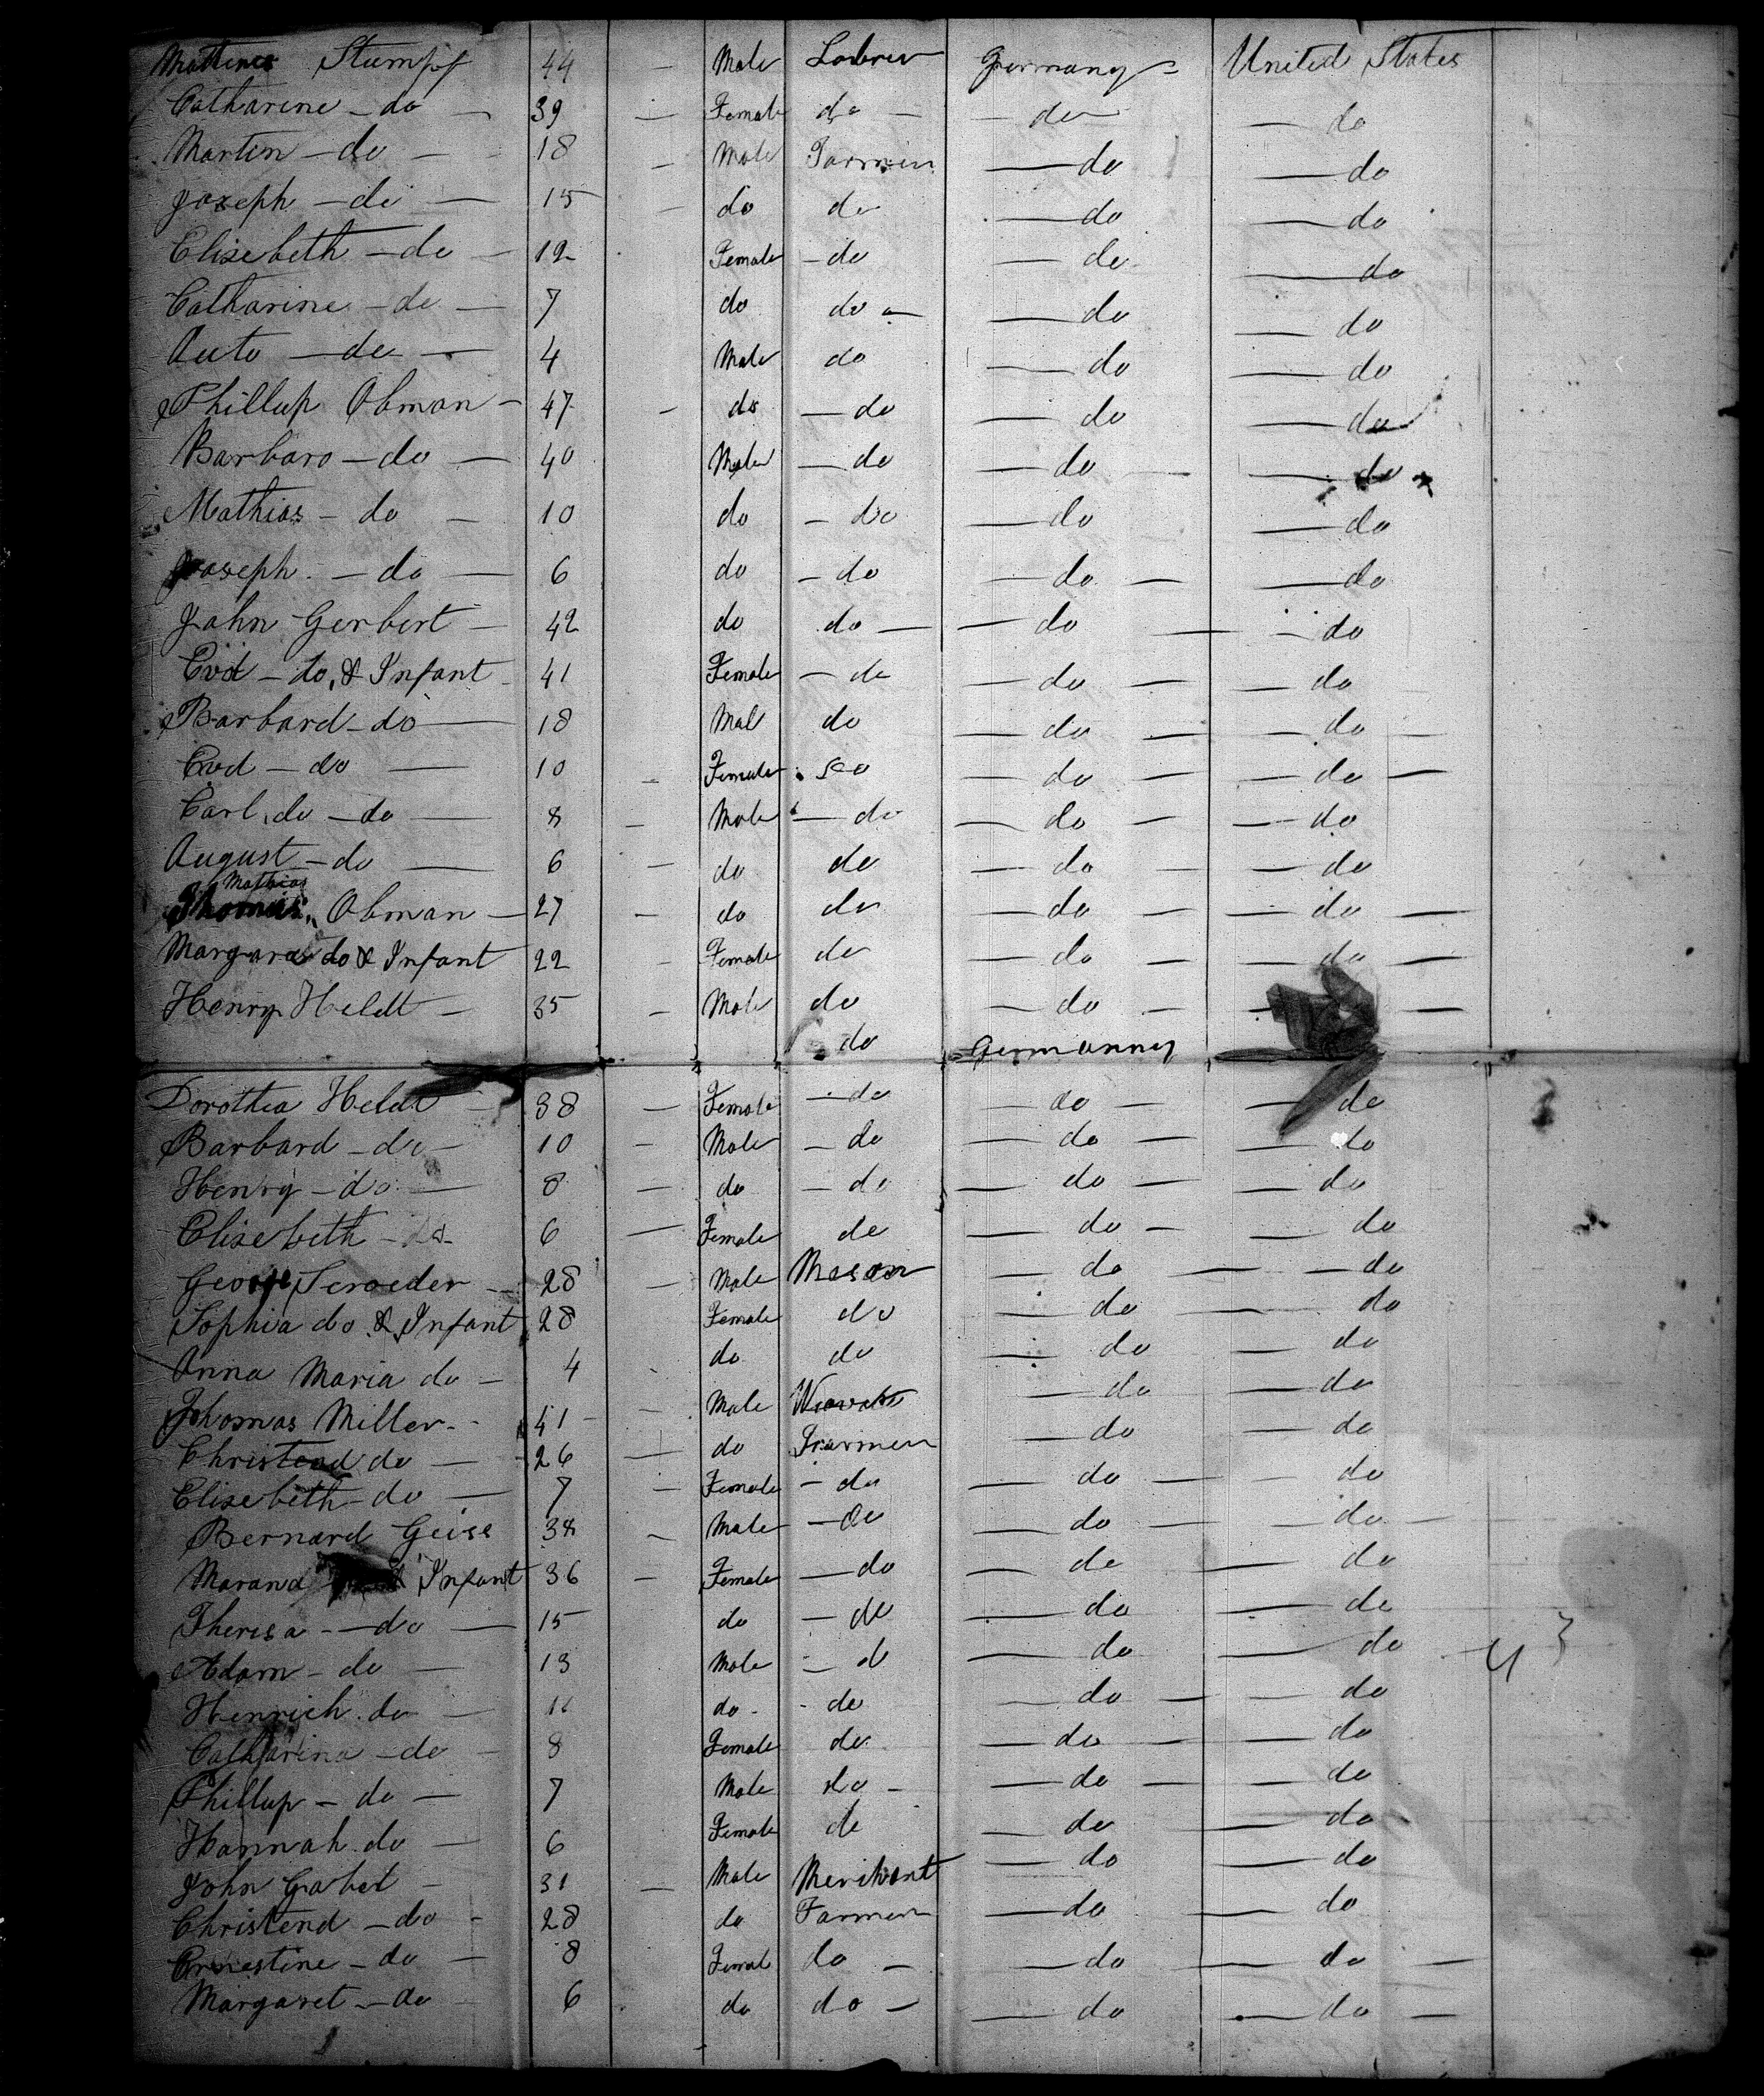 Stumpf 44 — Male Germany United States
Catharine — do — 39 — Female do — — do — do
Martin — do — 18 — Male Farmer — do — do
Joseph — do — 15 — do do — do — do
Elisebeth — do — 12 Female — do — do — do
Catharine — do — 7 do do — — do — do
Auto — do — 4 Male do — do — do
Phillup Obman — 47 — do — do — do — do
Barbaro — do — 40 Male — do — do — do
Mathias — do — 10 do — do — do — do
Joseph — do — 6 do — do — do — — do
John Gerbert — 42 do do — — do — — do
Evd — do, & Infant 41 Female — do — do — — do
Barbard — do — 18 Mal do — do — — do —
Evd — do — 10 — Female do — do — — do —
Carl do — do — 8 — Male — do — do — — do
August — do — 6 — do do — do — — do
Mathias
Thomas Obman — 27 — do do — do — — do —
Margaret do & Infant 22 — Female do — do — — do —
Henry Heldt — 35 — Male do — do — — —
do Germanny
Dorothea Heldt — 38 — Female — do — do — — do
Barbard — do — 10 — Male — do — do — — do
Henry — do — 8 — do — do — do — — do
Elisebeth — do 6 — Female do — do — — do
George Scroeder — 28 — Male Mason — do — — do
Sophia do & Infant 28 Female do — do — do
Anna Maria do — 4 do do — do — do
Thomas Miller — 41 — Male — do — do
Christend do — 26 — do Farmer — do — do
Elisebeth — do — 7 — Female — do — do — — do
Bernard Geiss 38 — Male — do — do — — do —
Marand Infant 36 — Female — do — do — do
Theresa — do — 15 do — do — do — do
Adam — do — 13 Male — do — do — do
Henrich do — 11 do — do — do — — do
Catharina — do — 8 Female do — do — — do
Phillup — do — 7 Male do — — do — — do
Hannah do — 6 Female do — do — do
John Gabel — 31 — Male Merchant — do — do
Christend — do — 28 do Farmer — do — do
Ernestine — do — 8 Femal do — — do — do —
Margaret — do 6 do do — — do — do —